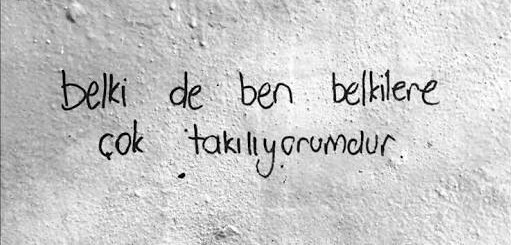 belki de ben belkilere
çok takılıyorumdur.